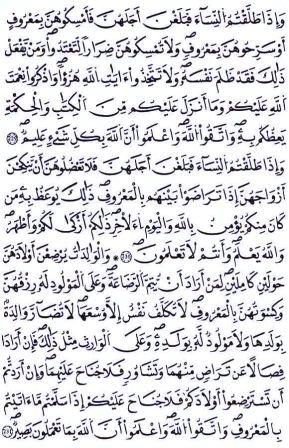 وَإِذَا طَلَّقْتُمُ النِّسَآءَ فَبَلَغْنَ أَجَلَهُنَّ فَأَمْسِكُوهُنَّ بِمَعْرُوفٍ
أَوْ سَرِّحُوهُنَّ بِمَعْرُوفٍ وَلَا تُمْسِكُوهُنَّ ضِرَارًا لِّتَعْتَدُوا وَمَنْ يَّفْعَلْ
ذَٰلِكَ فَقَدْ ظَلَمَ نَفْسَهُ وَلَا تَتَّخِذُوا ءَايَٰتِ اللَّهِ هُزُؤًا وَاذْكُرُوا نِعْمَتَ
اللَّهِ عَلَيْكُمْ وَمَآ أَنزَلَ عَلَيْكُم مِّنَ الْكِتَٰبِ وَالْحِكْمَةِ
يَعِظُكُم بِهِ وَاتَّقُوا اللَّهَ وَاعْلَمُوا أَنَّ اللَّهَ بِكُلِّ شَيْءٍ عَلِيمٌ
وَإِذَا طَلَّقْتُمُ النِّسَآءَ فَبَلَغْنَ أَجَلَهُنَّ فَلَا تَعْضُلُوهُنَّ أَنْ يَّنكِحْنَ
أَزْوَٰجَهُنَّ إِذَا تَرَٰضَوْا بَيْنَهُم بِالْمَعْرُوفِ ذَٰلِكَ يُوعَظُ بِهِ مَن
كَانَ مِنكُمْ يُؤْمِنُ بِاللَّهِ وَالْيَوْمِ الْآخِرِ ذَٰلِكُمْ أَزْكَىٰ لَكُمْ وَأَطْهَرُ
وَاللَّهُ يَعْلَمُ وَأَنتُمْ لَا تَعْلَمُونَ وَالْوَٰلِدَٰتُ يُرْضِعْنَ أَوْلَٰدَهُنَّ
حَوْلَيْنِ كَامِلَيْنِ لِمَنْ أَرَادَ أَنْ يُّتِمَّ الرَّضَاعَةَ وَعَلَى الْمَوْلُودِ لَهُ رِزْقُهُنَّ
وَكِسْوَتُهُنَّ بِالْمَعْرُوفِ لَا تُكَلَّفُ نَفْسٌ إِلَّا وُسْعَهَا لَا تُضَآرَّ وَٰلِدَةٌ
بِوَلَدِهَا وَلَا مَوْلُودٌ لَّهُ بِوَلَدِهِ وَعَلَى الْوَارِثِ مِثْلُ ذَٰلِكَ فَإِنْ أَرَادَا
فِصَالًا عَن تَرَاضٍ مِّنْهُمَا وَتَشَاوُرٍ فَلَا جُنَاحَ عَلَيْهِمَا وَإِنْ أَرَدتُّمْ
أَن تَسْتَرْضِعُوا أَوْلَٰدَكُمْ فَلَا جُنَاحَ عَلَيْكُمْ إِذَا سَلَّمْتُم مَّآ ءَاتَيْتُم
بِالْمَعْرُوفِ وَاتَّقُوا اللَّهَ وَاعْلَمُوا أَنَّ اللَّهَ بِمَا تَعْمَلُونَ بَصِيرٌ